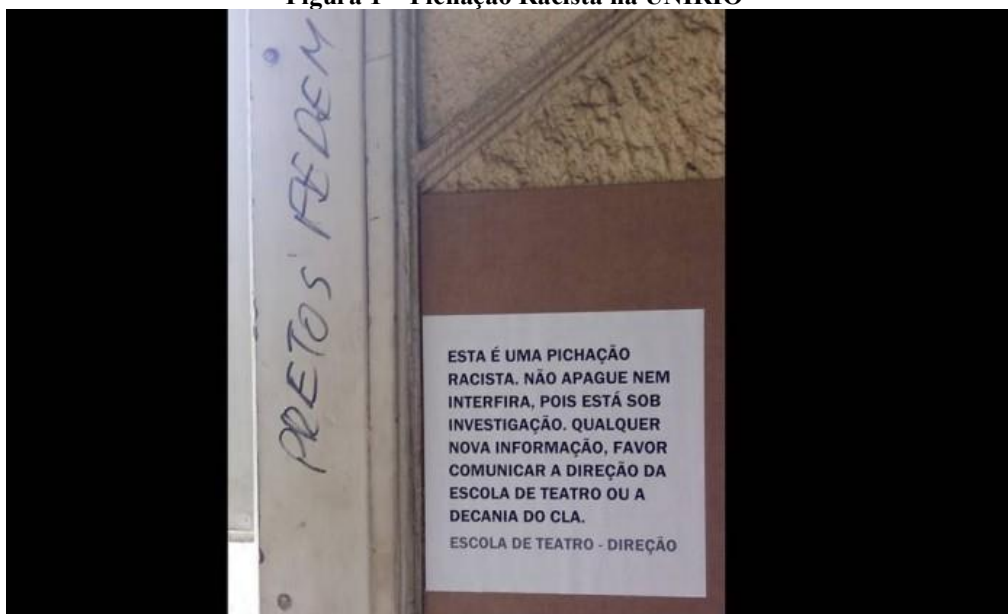 Figura 1 – Pichação Racista na UNIRIO
PRETOS FEDEM
ESTA É UMA PICHAÇÃO
RACISTA. NÃO APAGUE NEM
INTERFIRA, POIS ESTÁ SOB
INVESTIGAÇÃO. QUALQUER
NOVA INFORMAÇÃO, FAVOR
COMUNICAR A DIREÇÃO DA
ESCOLA DE TEATRO OU A
DECANIA DO CLA.
ESCOLA DE TEATRO - DIREÇÃO